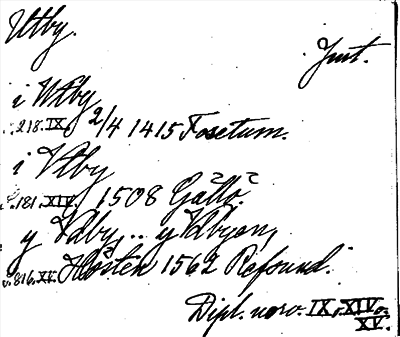 Utby.
Jmt.
i Wtby
218.IX. 2/4 1415 Fosetum.
i Vtby
181.XIV. 1508 Gållö.
y Vdby, .. y Vdbyen,
816.XV. Hösten 1562 Refsund.
Dipl. norv. IX, XIV,
XV.